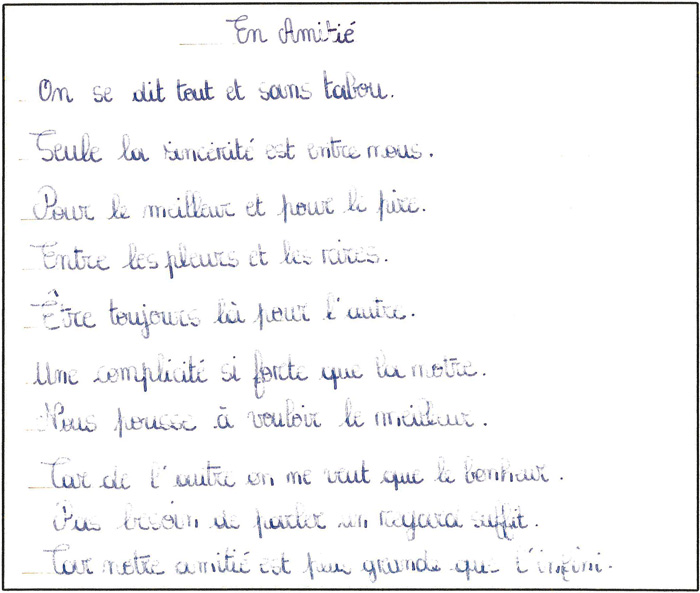 En Amitié
On se dit tout et sans tabou.
Seule la sincérité est entre nous.
Pour le meilleur et pour le pire.
Entre les pleurs et les rires.
Être toujours là pour l'autre.
Une complicité si forte que la notre.
Nous pousse à vouloir le meilleur.
Car de l'autre on ne veut que le bonheur.
Pas besoin de parler un regard suffit.
Car notre amitié est plus grande que l'infini.